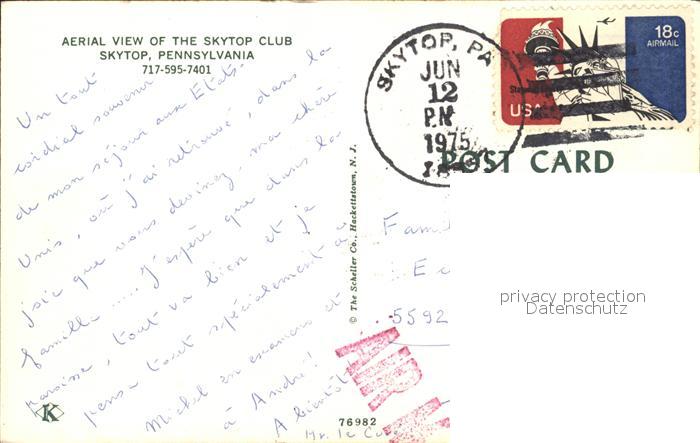 AERIAL VIEW OF THE SKYTOP CLUB
SKYTOP, PENNSYLVANIA
717-595-7401
Un tout
cordial souvenir
de mon séjour aux Etats-
Unis, où j'ai retrouvé, dans la
joie que vous devinez, ma chère
famille ..... J'espère que dans la
paroisse, tout va bien et je
pense tout spécialement à
Michel en examens et
à André!
A bientôt
Mr. le Curé
K
76982
© The Scheller Co., Hackettstown, N. J.
SKYTOP, PA
JUN
12
PM
1975
18c
AIRMAIL
USA
POST CARD
Fam
E
5592
privacy protection
Datenschutz